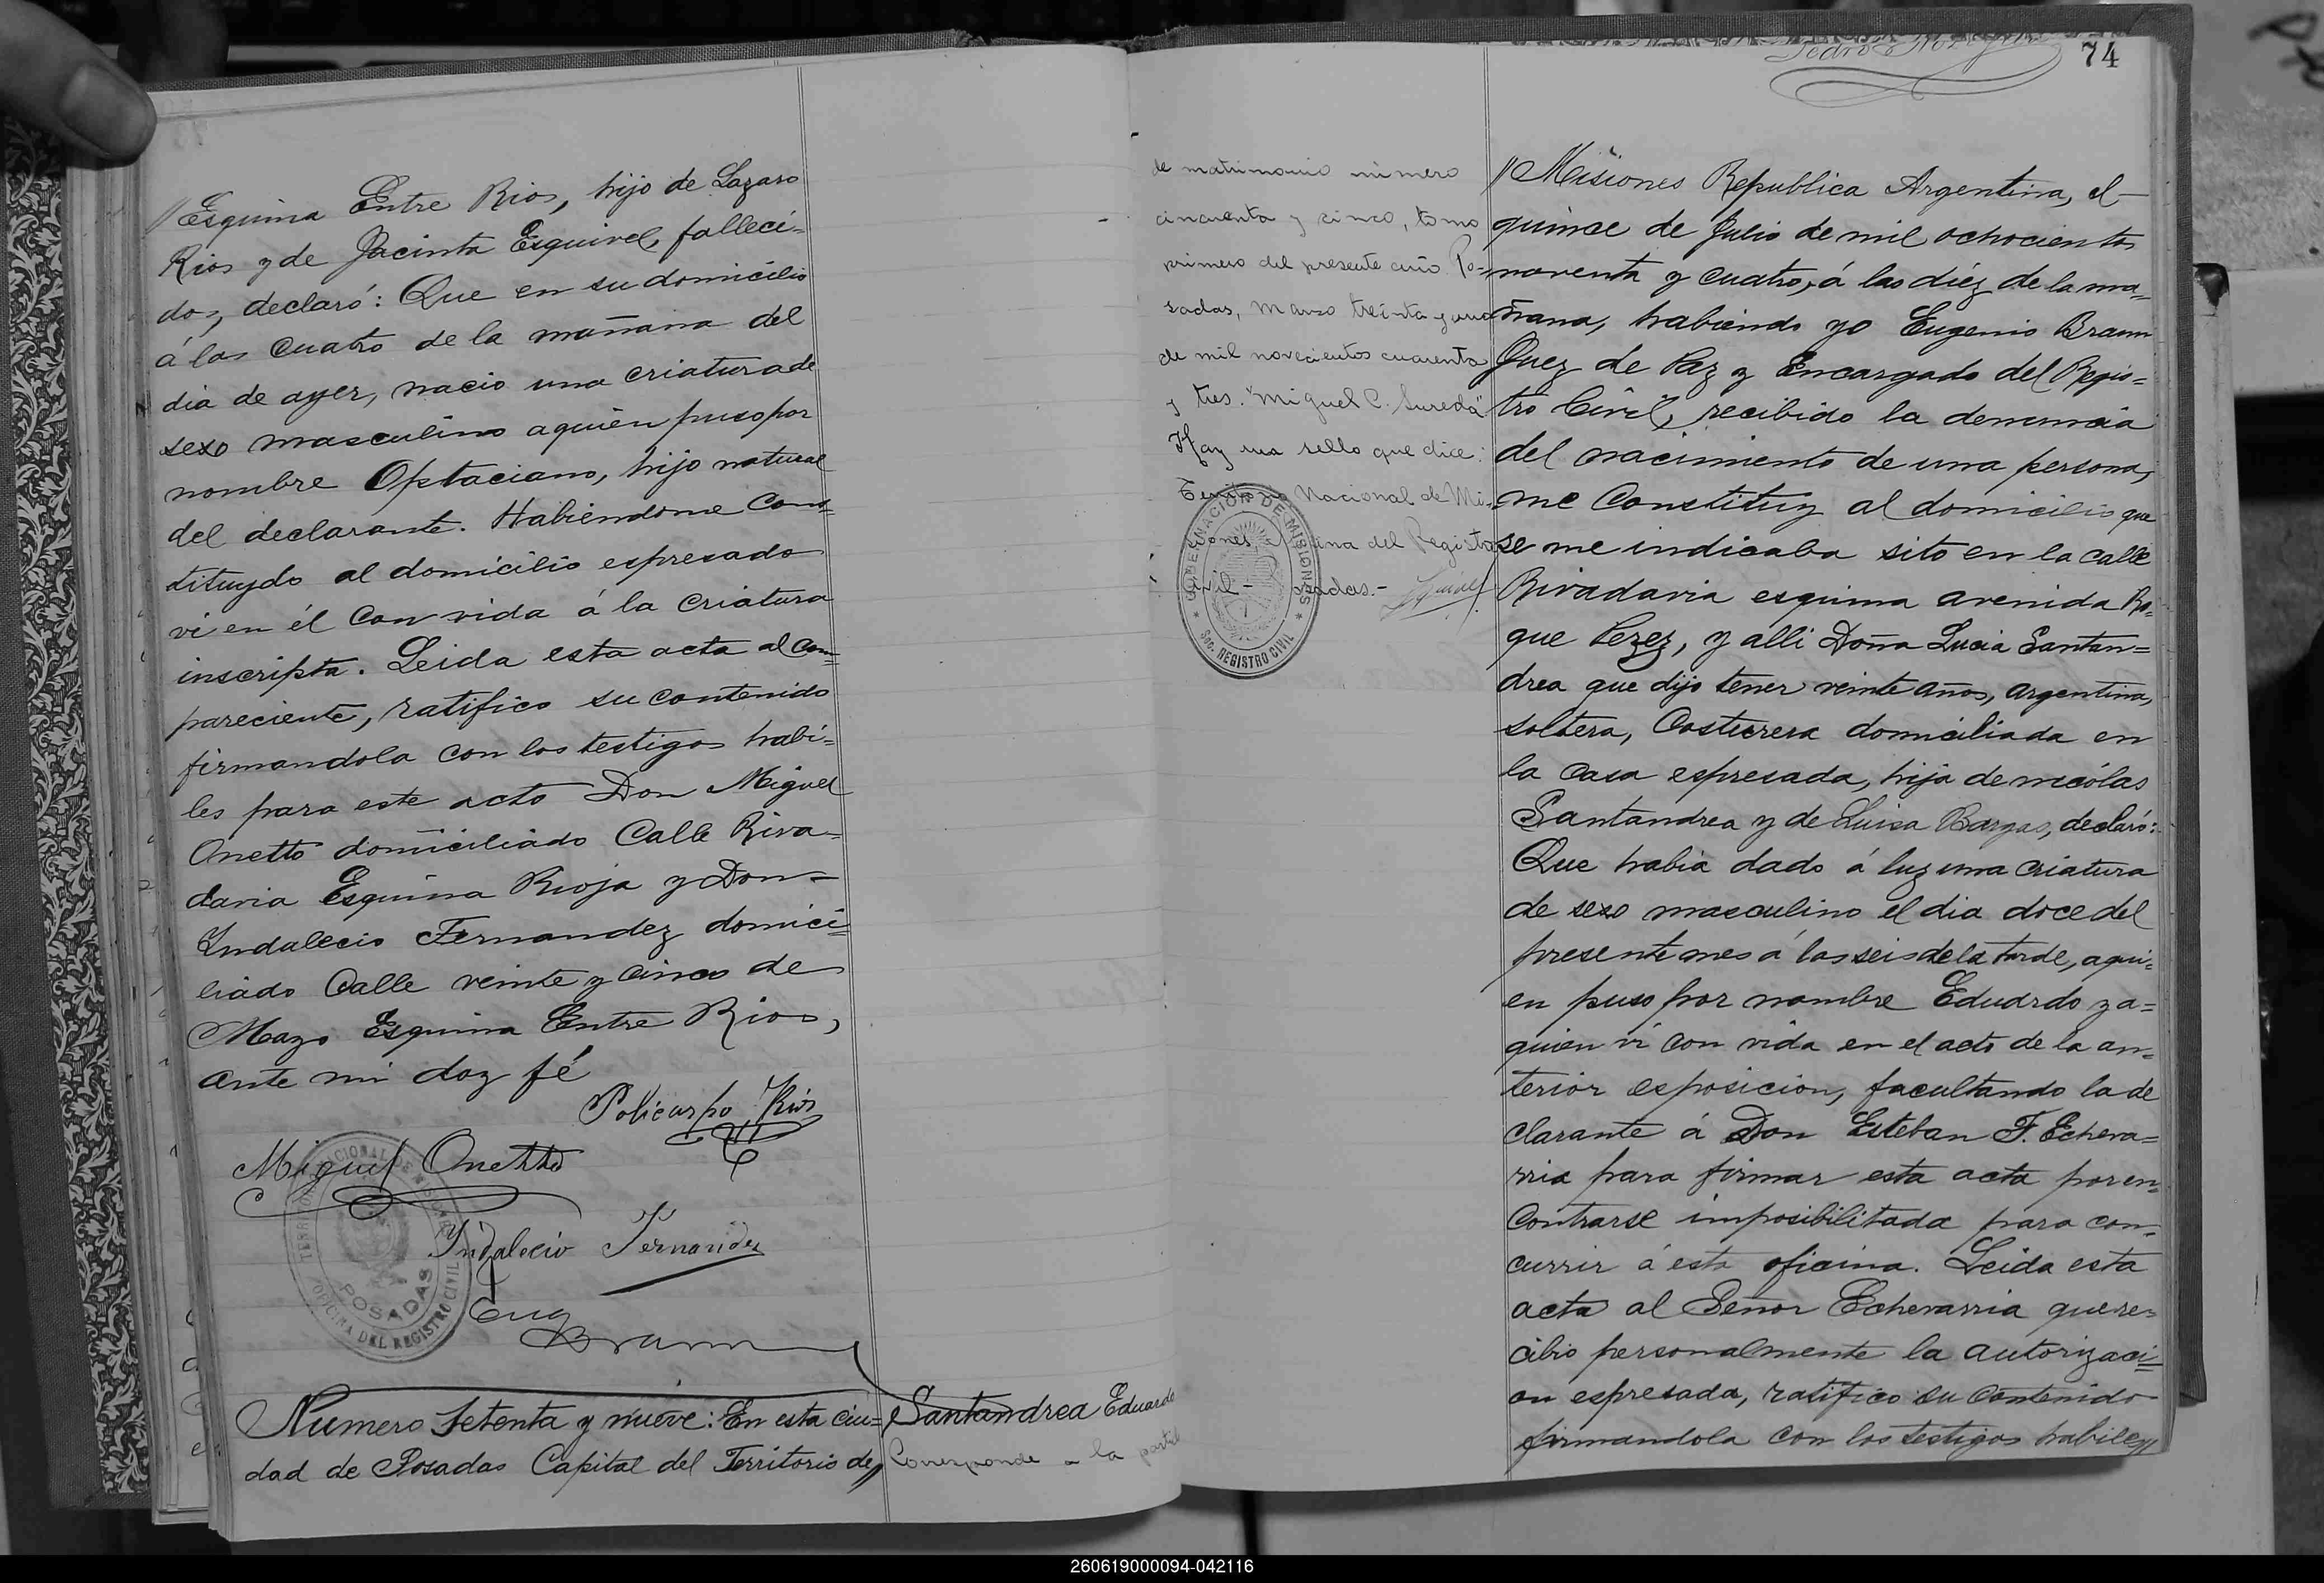 // Esquina Entre Rios, hijo de Lazaro
Rios y de Jacinta Esquivel, falleci=
dos, declaró: Que en su domicilio
á las cuatro de la mañana del
dia de ayer, nacio una criatura de
sexo masculino a quien puso por
nombre Optaciano, hijo natural
del declarante. Habiendome cons=
tituydo al domicilio espresado
vi en él con vida á la criatura
inscripta. Leida esta acta al com=
pareciente, ratifico su contenido
firmandola con los testigos habi=
les para este acto Don Miguel
Onetto domiciliado Calle Riva=
davia Esquina Rioja y Don
Indalecio Fernandez domici=
liado Calle veinte y cinco de
Mayo Esquina Entre Rios,
ante mi doy fé
Policarpo Rios
Miguel Onetto
Indalecio Fernandez
Eug Braun
TERRITORIO NACIONAL DE MISIONES
POSADAS
OFICINA DEL REGISTRO CIVIL
Numero Setenta y nueve: En esta ciu=
dad de Posadas Capital del Territorio de //
Santandrea Eduardo
Corresponde a la partida
de matrimonio número
cincuenta y cinco, tomo
primero del presente año. Po=
sadas, Marzo treinta y uno
de mil novecientos cuarenta
y tres. "Miguel C. Sureda"
Hay un sello que dice:
Territorio Nacional de Mi-
siones Oficina del Registro
Civil - Posadas.-
GOBERNACION DE MISIONES
Sec. REGISTRO CIVIL
74
// Misiones Republica Argentina, el
quince de Julio de mil ochocientos
noventa y cuatro, á las diéz de la ma=
ñana, habiendo yo Eugenio Braun
Juez de Paz y Encargado del Regis=
tro Civil, recibido la denuncia
del nacimiento de una persona,
me Constituy al domicilio que
se me indicaba sito en la calle
Rivadavia esquina avenida Ro=
que Perez, y alli Doña Lucia Santan=
drea que dijo tener veinte años, argentina,
soltera, Costurera domiciliada en
la casa espresada, hija de nicólas
Santandrea y de Luisa Bargas, declaró:
Que habia dado á luz una criatura
de sexo masculino el dia doce del
presente mes á las seis de la tarde, a qui=
en puso por nombre Eduardo y a=
quien vi con vida en el acto de la an=
terior esposicion, facultando la de
clarante á Don Esteban F. Echeva=
rria para firmar esta acta por en=
contrarse imposibilitada para con=
currir á esta oficina. Leida esta
acta al Señor Echevarria que re=
cibio personalmente la autorizaci=
on espresada, ratifico su contenido
firmandola con los testigos habiles //
260619000094-042116